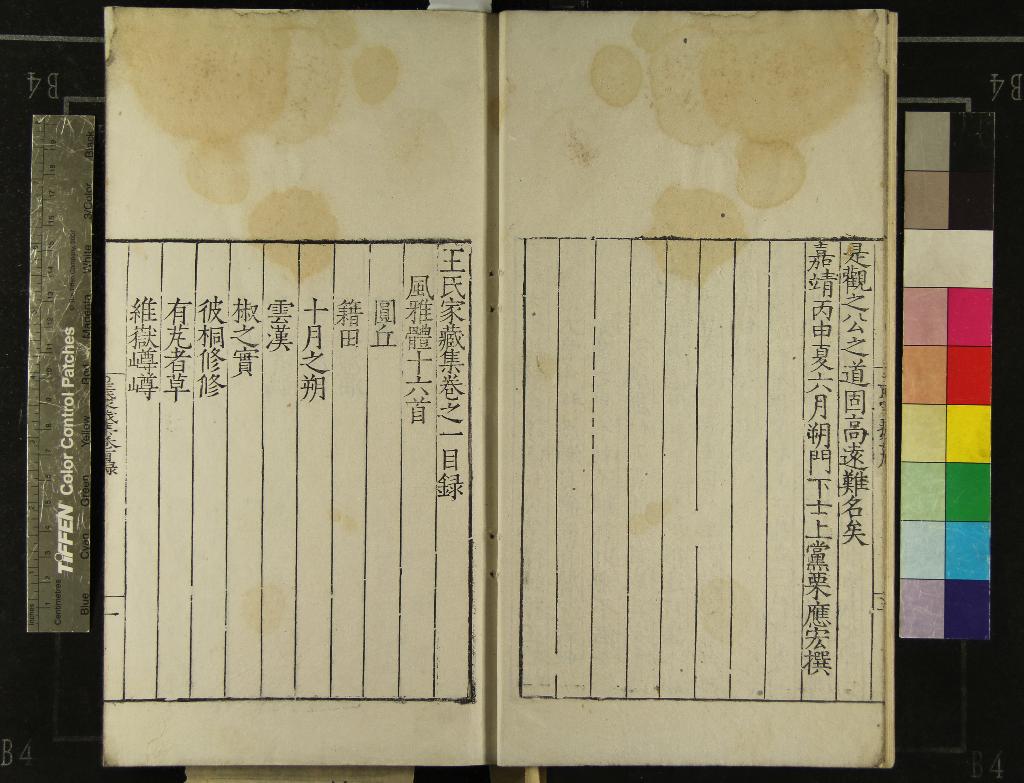 是觀之公之道固高遠難名矣
嘉靖丙申夏六月朔門下士上黨栗應宏撰
王氏家藏集卷之一目録
風雅體十六首
圓丘
籍田
十月之朔
雲漢
椒之實
彼桐修修
有芃者草
維嶽嶟嶟
一
TIFFEN Color Control Patches
Blue
Cyan
Green
Yellow
Red
Magenta
White
3/Color
Black
Inches
Centimetres
B4
B4
B4
B4